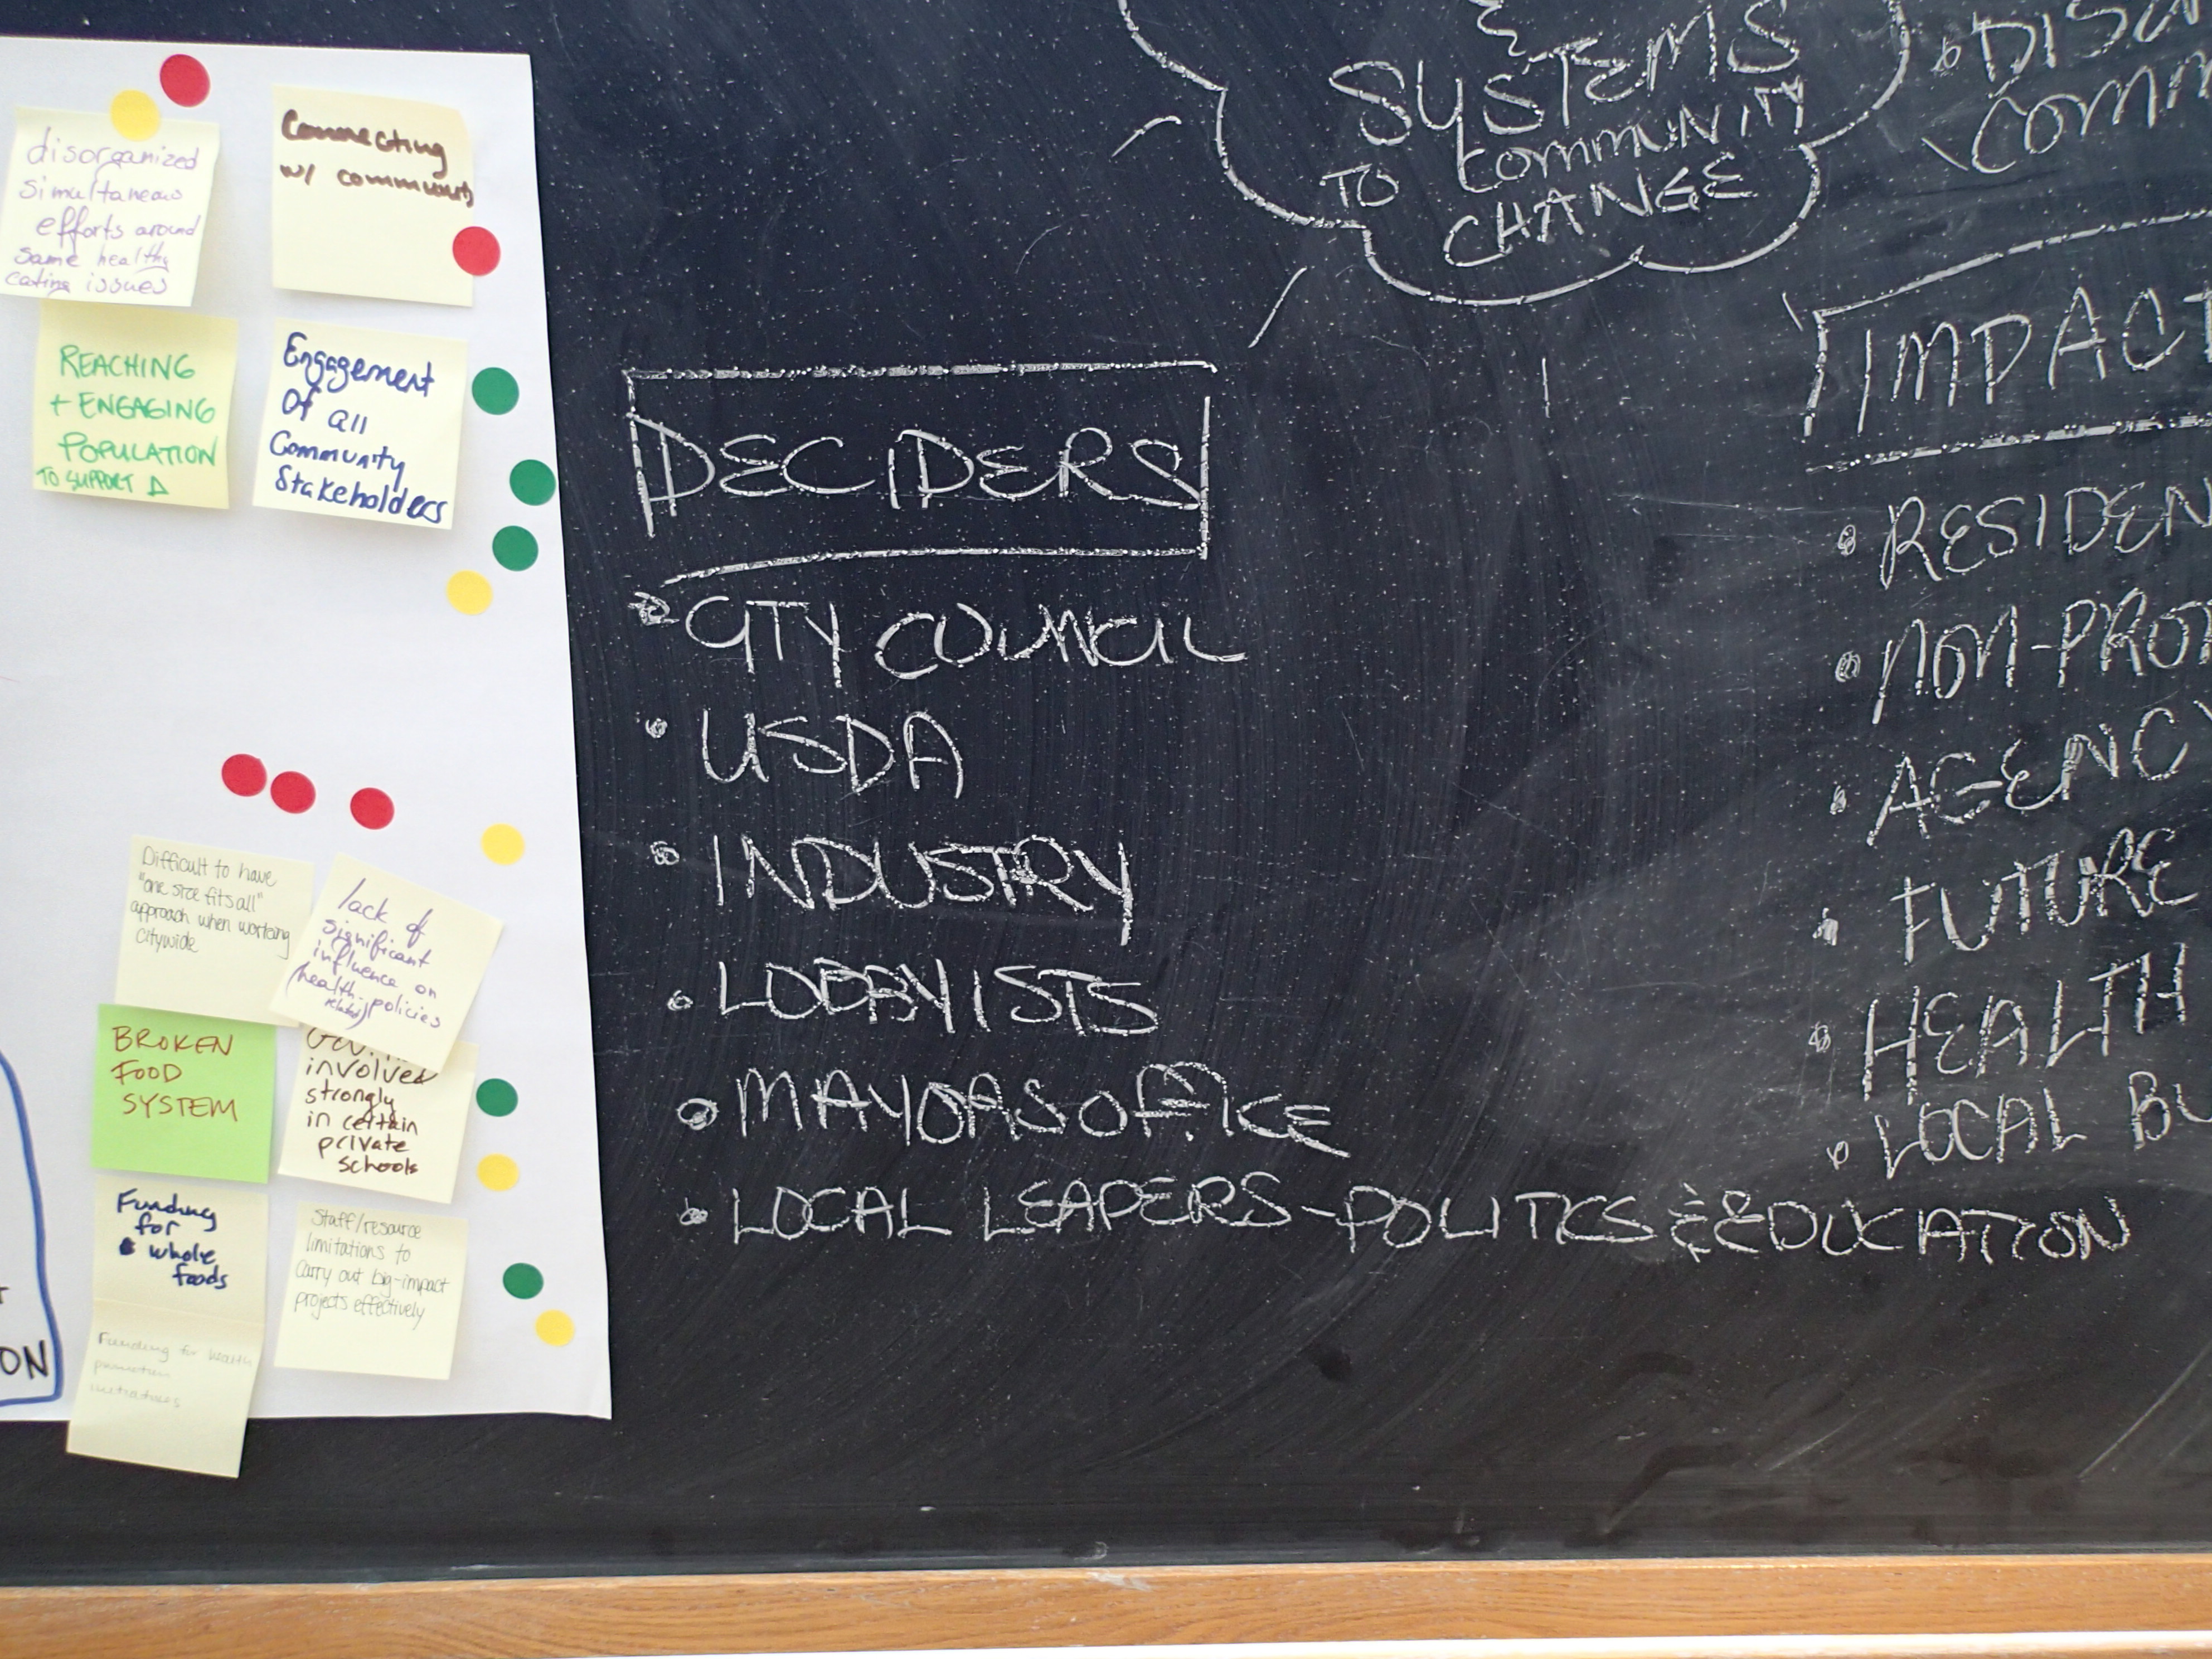 disorganized
simultaneous
efforts around
same healthy
eating issues
Connecting
w/ community
REACHING
+ ENGAGING
POPULATION
TO SUPPORT Δ
Engagement
Of all
Community
Stakeholders
Difficult to have
"one size fits all"
approach when working
citywide
lack of
significant
influence on
(health-policies
related)
BROKEN
FOOD
SYSTEM
involved
strongly
in certain
private
schools
Funding
for
whole
foods
Staff/resource
limitations to
carry out big-impact
projects effectively
Funding for health
ON
&
SYSTEMS
TO COMMUNITY
CHANGE
DECIDERS
• CITY COUNCIL
• USDA
• INDUSTRY
• LOBBYISTS
• MAYORS OFFICE
• LOCAL LEADERS-POLITICS & EDUCATION
DISC
COMM
IMPACT
• RESIDEN
• NON-PROF
• AGENCY
• FUTURE
• HEALTH
• LOCAL BU